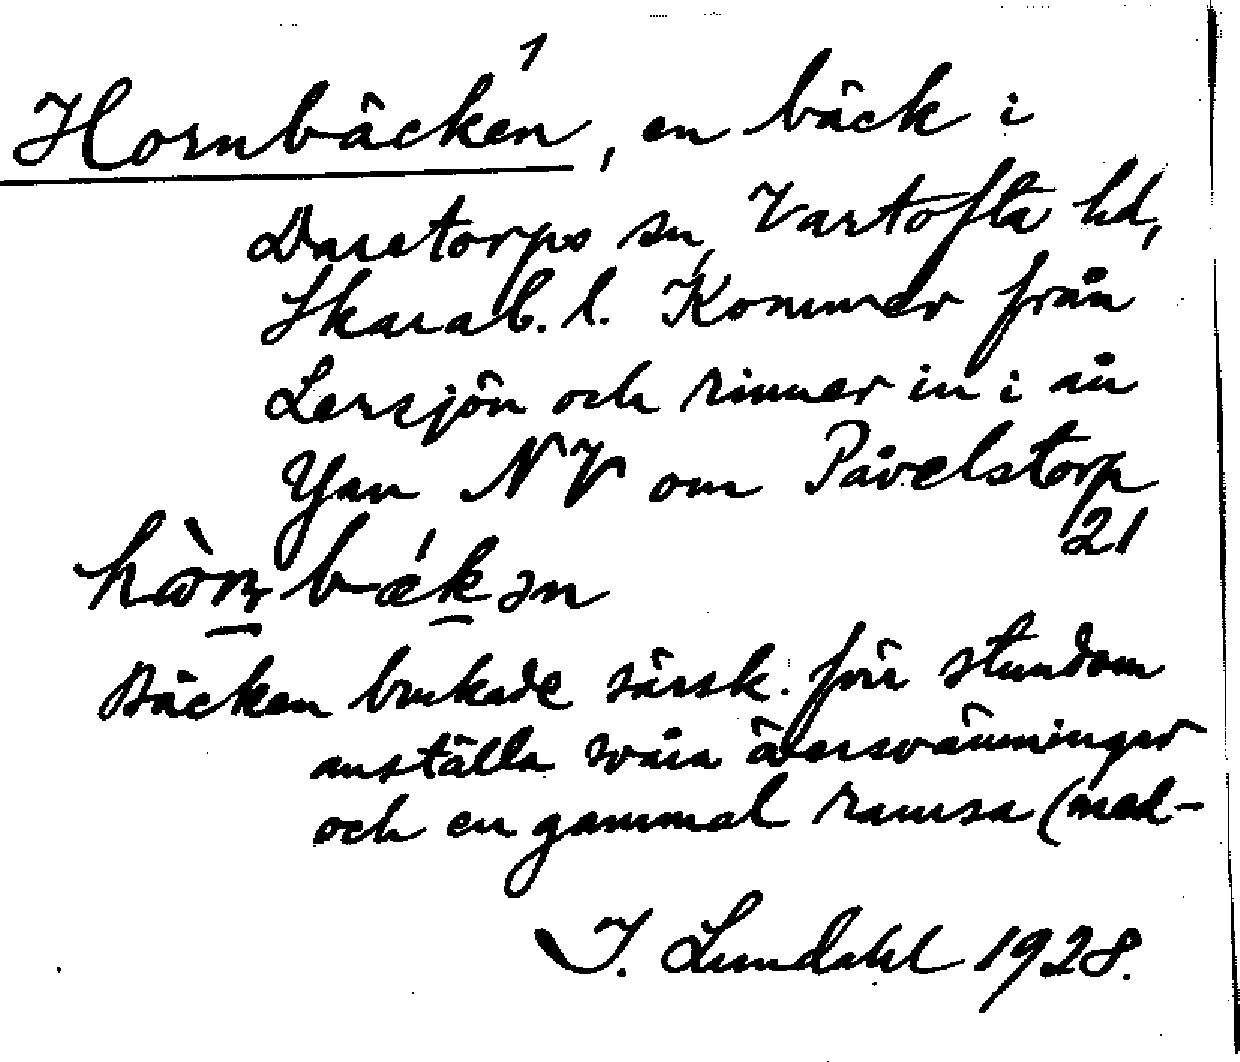 1
Hornbäcken, en bäck i
Daretorps sn, Vartofta hd,
Skarab. l. Kommer från
Lersjön och rinner in i ån
Yan NV om Påvelstorp
21
hò̱rn bǽkən
Bäcken brukade särsk. förr stundom
anställa svåra översvämningar
och en gammal ramsa (med-
I. Lundahl 1928.